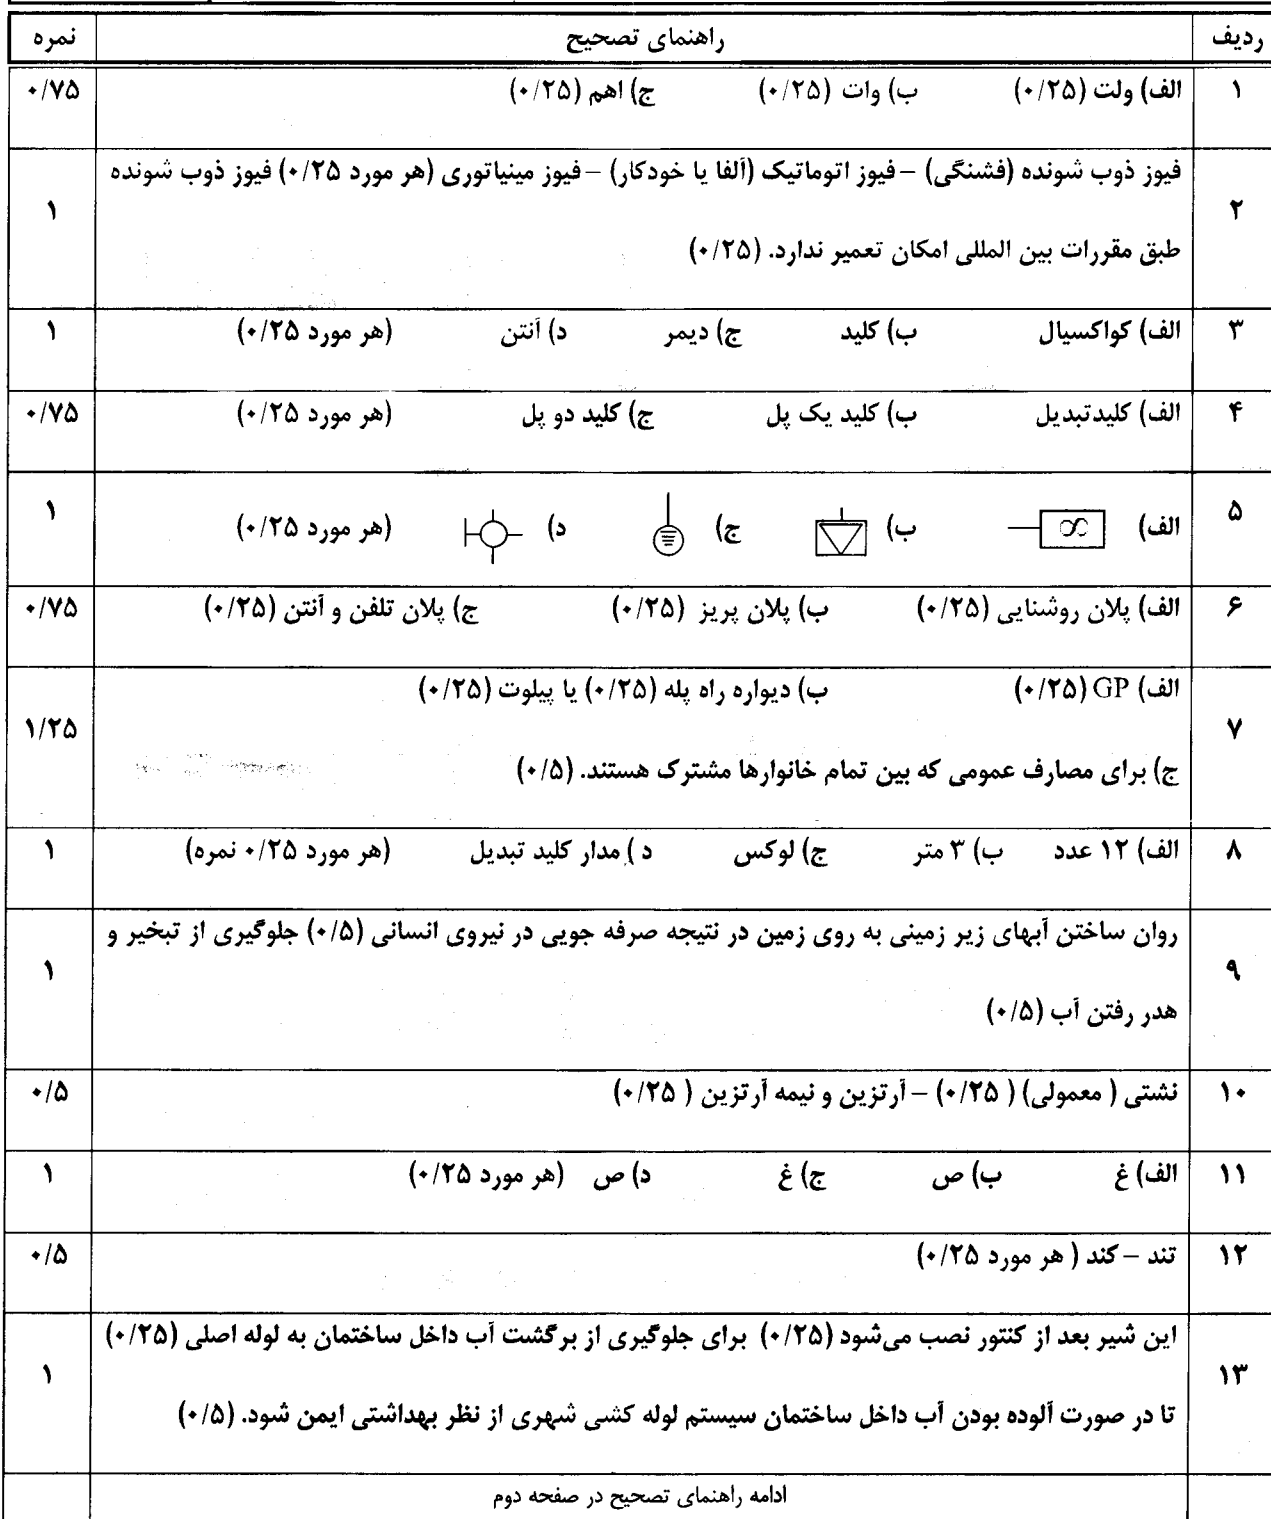 ردیف راهنمای تصحیح نمره
۱ الف) ولت (۰/۲۵) ب) وات (۰/۲۵) ج) اهم (۰/۲۵) ۰/۷۵
فیوز ذوب شونده (فشنگی) – فیوز اتوماتیک (آلفا یا خودکار) – فیوز مینیاتوری (هر مورد ۰/۲۵) فیوز ذوب شونده
۲ ۱
طبق مقررات بین المللی امکان تعمیر ندارد. (۰/۲۵)
۳ الف) کواکسیال ب) کلید ج) دیمر د) آنتن (هر مورد ۰/۲۵) ۱
۴ الف) کلیدتبدیل ب) کلید یک پل ج) کلید دو پل (هر مورد ۰/۲۵) ۰/۷۵
۵ الف) ب) ج) د) (هر مورد ۰/۲۵) ۱
۶ الف) پلان روشنایی (۰/۲۵) ب) پلان پریز (۰/۲۵) ج) پلان تلفن و آنتن (۰/۲۵) ۰/۷۵
الف) GP (۰/۲۵) ب) دیواره راه پله (۰/۲۵) یا پیلوت (۰/۲۵)
۷ ۱/۲۵
ج) برای مصارف عمومی که بین تمام خانوارها مشترک هستند. (۰/۵)
۸ الف) ۱۲ عدد ب) ۳ متر ج) لوکس د) مدار کلید تبدیل (هر مورد ۰/۲۵ نمره) ۱
روان ساختن آبهای زیر زمینی به روی زمین در نتیجه صرفه جویی در نیروی انسانی (۰/۵) جلوگیری از تبخیر و
۹ ۱
هدر رفتن آب (۰/۵)
۱۰ نشتی ( معمولی) ( ۰/۲۵) – آرتزین و نیمه آرتزین ( ۰/۲۵) ۰/۵
۱۱ الف) غ ب) ص ج) غ د) ص (هر مورد ۰/۲۵) ۱
۱۲ تند – کند ( هر مورد ۰/۲۵) ۰/۵
این شیر بعد از کنتور نصب می‌شود (۰/۲۵) برای جلوگیری از برگشت آب داخل ساختمان به لوله اصلی (۰/۲۵)
۱۳ ۱
تا در صورت آلوده بودن آب داخل ساختمان سیستم لوله کشی شهری از نظر بهداشتی ایمن شود. (۰/۵)
ادامه راهنمای تصحیح در صفحه دوم